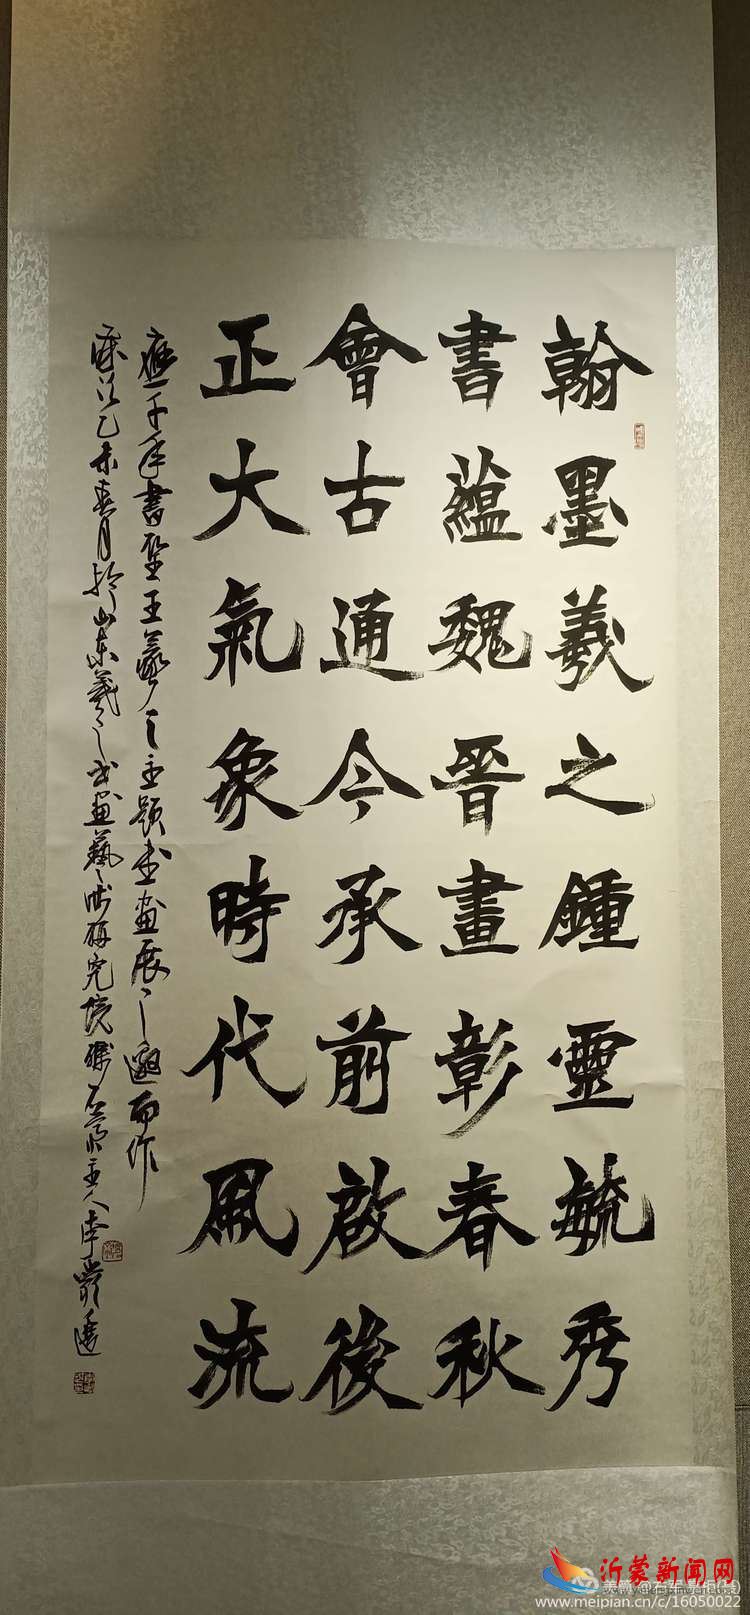 翰墨羲之鍾靈毓秀
書蘊魏晉畫彰春秋
會古通今承前啟後
正大氣象時代風流
應千年書聖王羲之主題書畫展之邀而作
歲次乙未春月於山東羲之書畫藝術研究院
沂蒙新闻网
www.meipian.cn/c/16050022